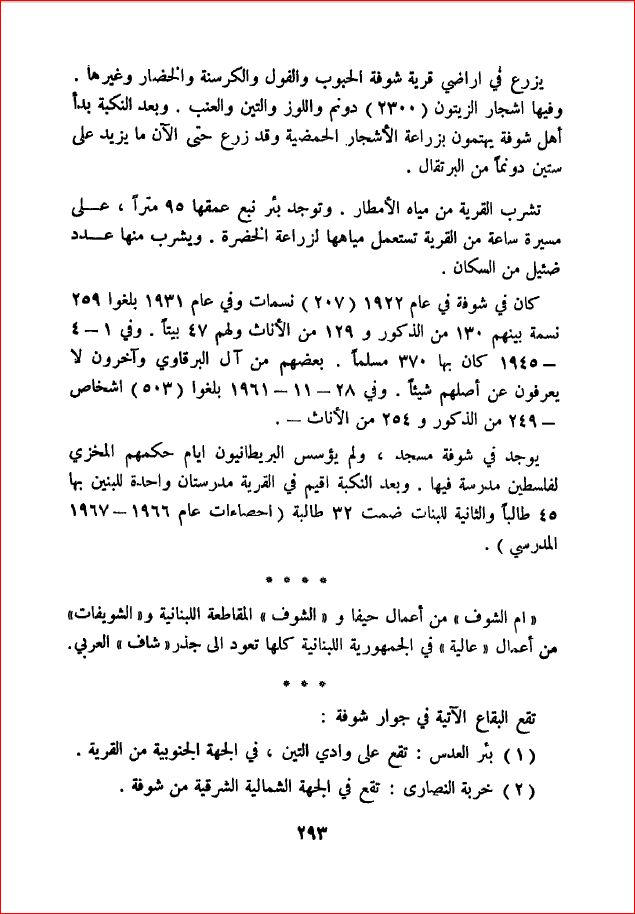 يزرع في اراضي قرية شوفة الحبوب والفول والكرسنة والخضار وغيرها .
وفيها اشجار الزيتون ( ٢٣٠٠ ) دونم واللوز والتين والعنب . وبعد النكبة بدأ
أهل شوفة يهتمون بزراعة الأشجار الحمضية وقد زرع حتّى الآن ما يزيد على
ستين دونماً من البرتقال .
تشرب القرية من مياه الأمطار . وتوجد بئر نبع عمقها ٩٥ متراً ، عـــلى
مسيرة ساعة من القرية تستعمل مياهها لزراعة الخضرة . ويشرب منها عـــدد
ضئيل من السكان .
كان في شوفة في عام ١٩٢٢ ( ٢٠٧ ) نسمات وفي عام ١٩٣١ بلغوا ٢٥٩
نسمة بينهم ١٣٠ من الذكور و ١٢٩ من الأناث ولهم ٤٧ بيتاً . وفي ١ – ٤
– ١٩٤٥ كان بها ٣٧٠ مسلماً . بعضهم من آل البرقاوي وآخرون لا
يعرفون عن أصلهم شيئاً . وفي ٢٨ – ١١ – ١٩٦١ بلغوا ( ٥٠٣ ) اشخاص
– ٢٤٩ من الذكور و ٢٥٤ من الأناث – .
يوجد في شوفة مسجد ، ولم يؤسس البريطانيون ايام حكمهم المخزي
لفلسطين مدرسة فيها . وبعد النكبة اقيم في القرية مدرستان واحدة للبنين بها
٤٥ طالباً والثانية للبنات ضمت ٣٢ طالبة ( احصاءات عام ١٩٦٦ – ١٩٦٧
المدرسي ) .
* * * *
« ام الشوف » من أعمال حيفا و « الشوف » المقاطعة اللبنانية و« الشويفات»
من أعمال « عالية » في الجمهورية اللبنانية كلها تعود الى جذر« شاف » العربي.
* * *
تقع البقاع الآتية في جوار شوفة :
( ١ ) بئر العدس : تقع على وادي التين ، في الجهة الجنوبية من القرية .
( ٢ ) خربة النصارى : تقع في الجهة الشمالية الشرقية من شوفة .
٢٩٣